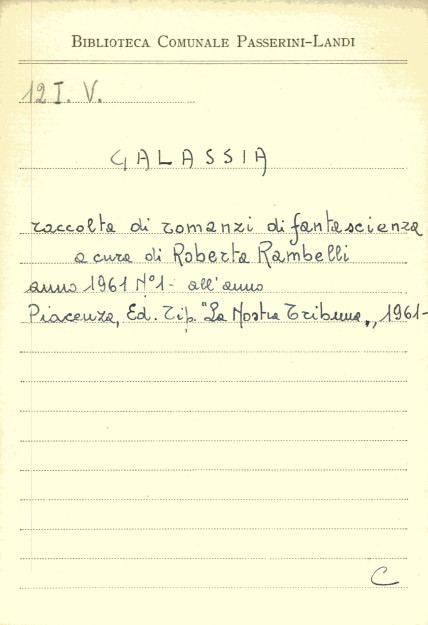 BIBLIOTECA COMUNALE PASSERINI-LANDI
12 I. V.
GALASSIA
raccolta di romanzi di fantascienza
a cura di Roberta Rambelli
anno 1961 N°1- all'anno
Piacenza, Ed. Tip. "La Nostra Tribuna", 1961-
C